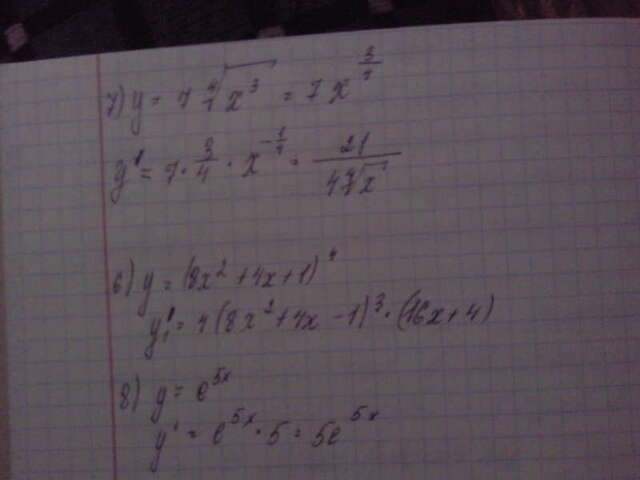 7) y = 7 ∜x³ = 7x^(3/4)
y' = 7 · 3/4 · x^(-1/4) = 21/(4∜x)
6) y = (8x² + 4x + 1)⁴
y' = 4(8x² + 4x - 1)³ · (16x + 4)
8) y = e^(5x)
y' = e^(5x) · 5 = 5e^(5x)